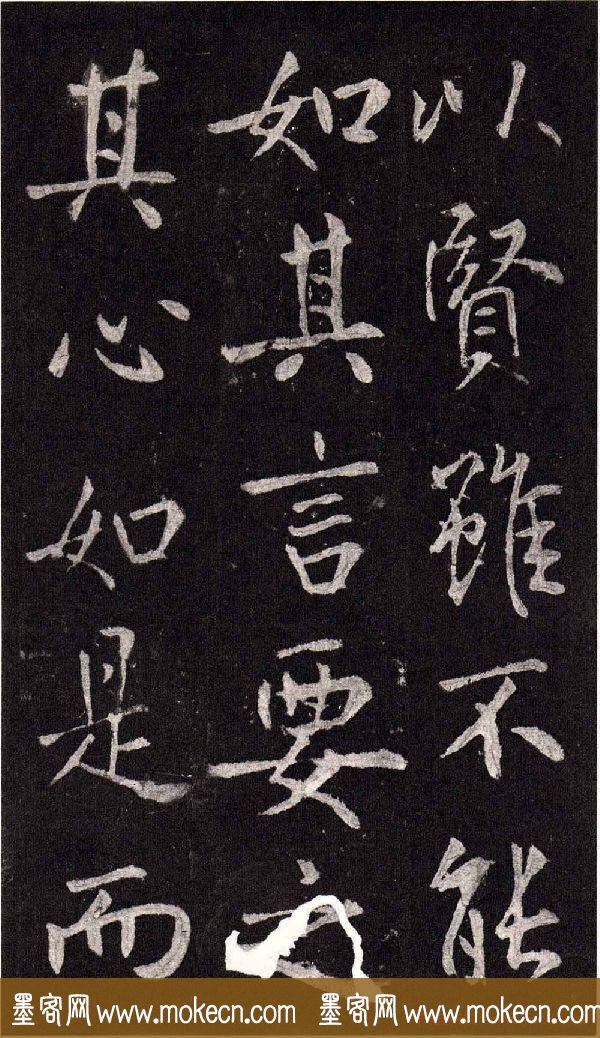 以賢雖不能
如其言要之
其心如是而
墨客网 www.mokecn.com 墨客网 www.mokecn.com